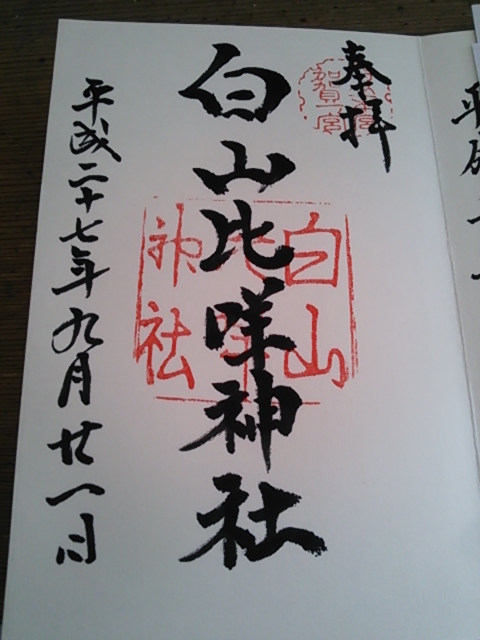 奉拝
加賀一宮
白山比咩神社
白山
比咩
神社
平成二十七年九月廿一日
平成二十